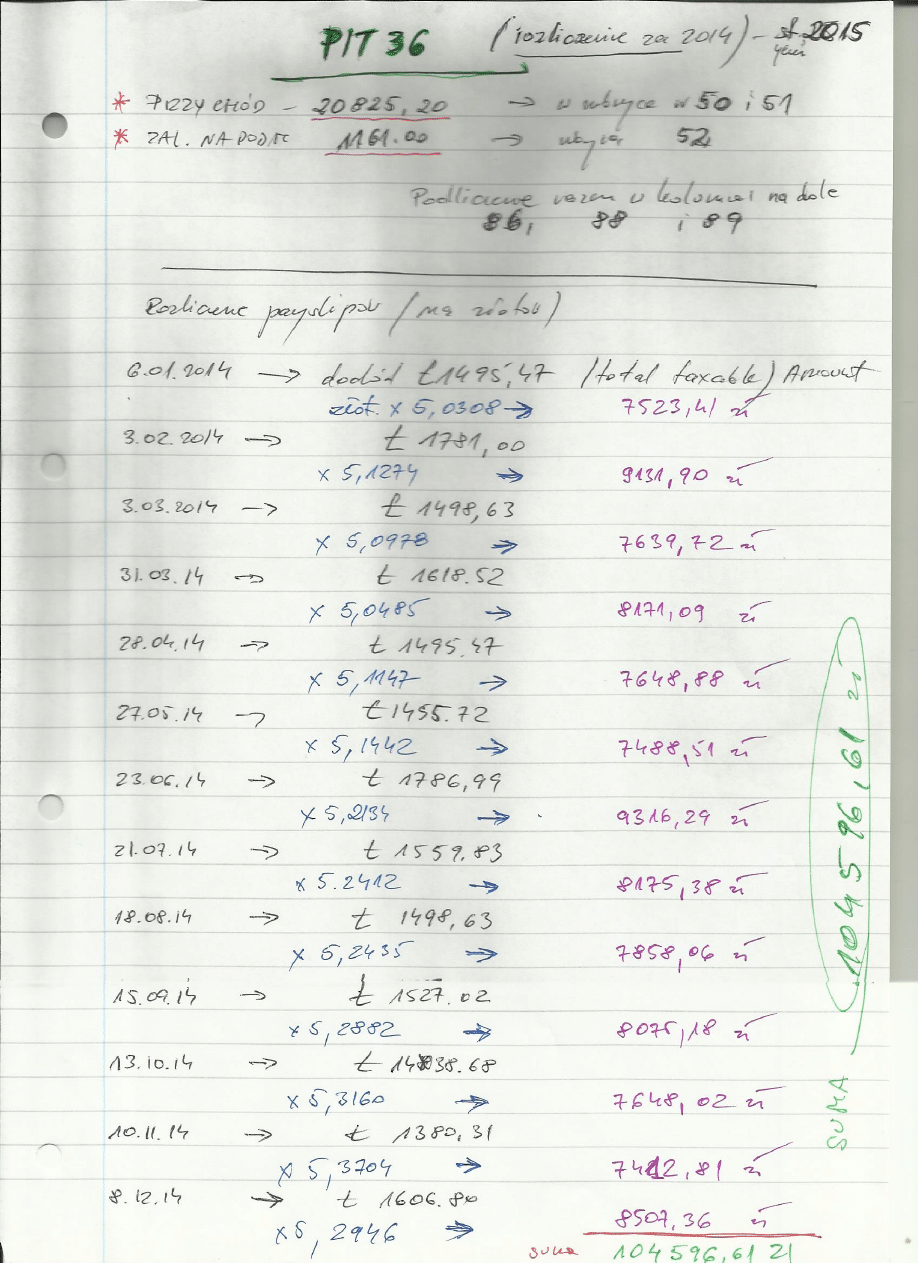 PIT 36 (rozliczenie za 2014) - st. 2015
* PRZYCHÓD - 20825,20 → w rubryce w 50 i 51
* ZAL. NA PODTC 1161.00 → 52
Podliczenie razem w kolumnei na dole
86, 88 i 89
Rozliczenie payslipów (na złotów)
6.01.2014 → dochód £1495,47 (total taxable) Amount
złot. x 5,0308 → 7523,41 zł
3.02.2014 → £ 1781,00
x 5,1274 → 9131,90 zł
3.03.2014 → £ 1498,63
x 5,0978 → 7639,72 zł
31.03.14 → £ 1618.52
x 5,0485 → 8171,09 zł
28.04.14 → £ 1495.47
x 5,1147 → 7648,88 zł
27.05.14 → £1455.72
x 5,1442 → 7488,51 zł
23.06.14 → £ 1786,99
x 5,2134 → 9316,29 zł
21.07.14 → £ 1559.83
x 5.2412 → 8175,38 zł
18.08.14 → £ 1498,63
x 5,2435 → 7858,06 zł
15.09.14 → £ 1527.02
x 5,2882 → 8075,18 zł
13.10.14 → £ 1438.68
x 5,3160 → 7648,02 zł
10.11.14 → £ 1380,31
x 5,3704 → 7412,81 zł
8.12.14 → £ 1606.80
x 5,2946 → 8507,36 zł
suma 104596,61 zł
SUMA 104596,61 zł